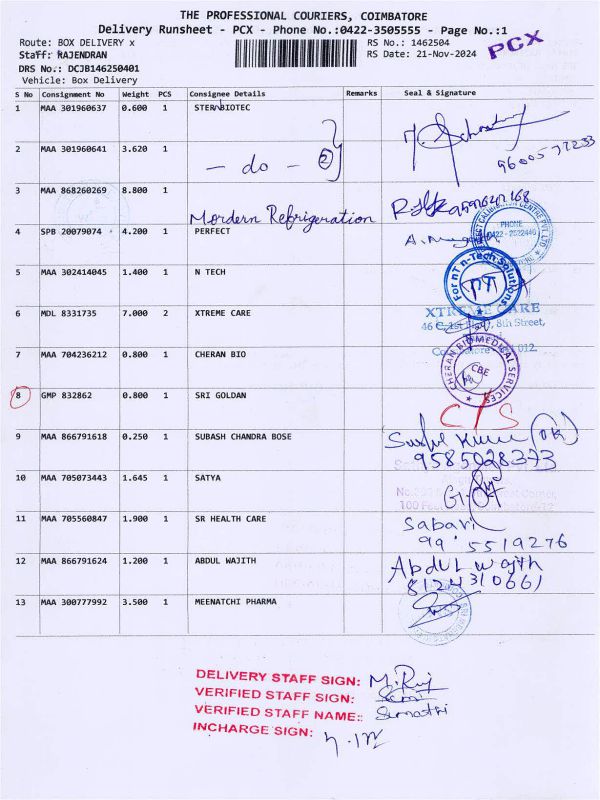 THE PROFESSIONAL COURIERS, COIMBATORE
Delivery Runsheet - PCX - Phone No.:0422-3505555 - Page No.:1
PCX
Route: BOX DELIVERY x
RS No.: 1462504
Staff: RAJENDRAN
RS Date: 21-Nov-2024
DRS No.: DCJB146250401
Vehicle: Box Delivery
S No Consignment No Weight PCS Consignee Details Remarks Seal & Signature
1 MAA 301960637 0.600 1 STERNBIOTEC
9600577233
2 MAA 301960641 3.620 1 - do - 2
3 MAA 868260269 8.800 1 Mordern Refrigeration
4 SPB 20079074 4.200 1 PERFECT
PHONE
0422 - 2522446
5 MAA 302414045 1.400 1 N TECH
For nT n-Tech Solutions
nT
6 MDL 8331735 7.000 2 XTREME CARE
XTREME CARE
8th Street,
7 MAA 704236212 0.800 1 CHERAN BIO
CHERAN BIOMEDICAL SERVICES
CBE
8 GMP 832862 0.800 1 SRI GOLDAN
C/S
9 MAA 866791618 0.250 1 SUBASH CHANDRA BOSE
9585028373
10 MAA 705073443 1.645 1 SATYA
11 MAA 705560847 1.900 1 SR HEALTH CARE
Sabari
5519276
12 MAA 866791624 1.200 1 ABDUL WAJITH
Abdul Wajth
8124310661
13 MAA 300777992 3.500 1 MEENATCHI PHARMA
DELIVERY STAFF SIGN: M.Raj
VERIFIED STAFF SIGN:
VERIFIED STAFF NAME:: Sumathi
INCHARGE SIGN: